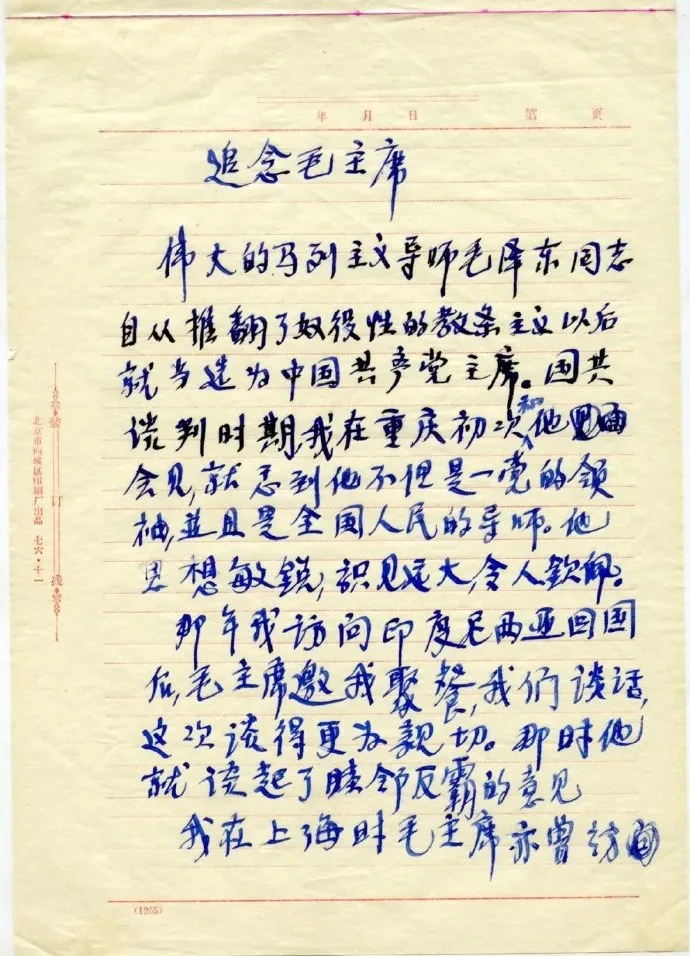 年 月 日 第 页
追念毛主席
伟大的马列主义导师毛泽东同志
自从推翻了奴役性的教条主义以后
就当选为中国共产党主席。国共
谈判时期,我在重庆初次和他
会见,就感到他不但是一党的领
袖,並且是全国人民的导师。他
思想敏锐,识见远大,令人钦佩。
那年我访问印度尼西亚回国
后,毛主席邀我聚餐,我们谈话,
这次谈得更为親切。那时他
就谈起了睦邻反霸的意见
我在上海时毛主席亦曾访
装订线
北京市西城区印刷厂出品 七六·十一
(1255)